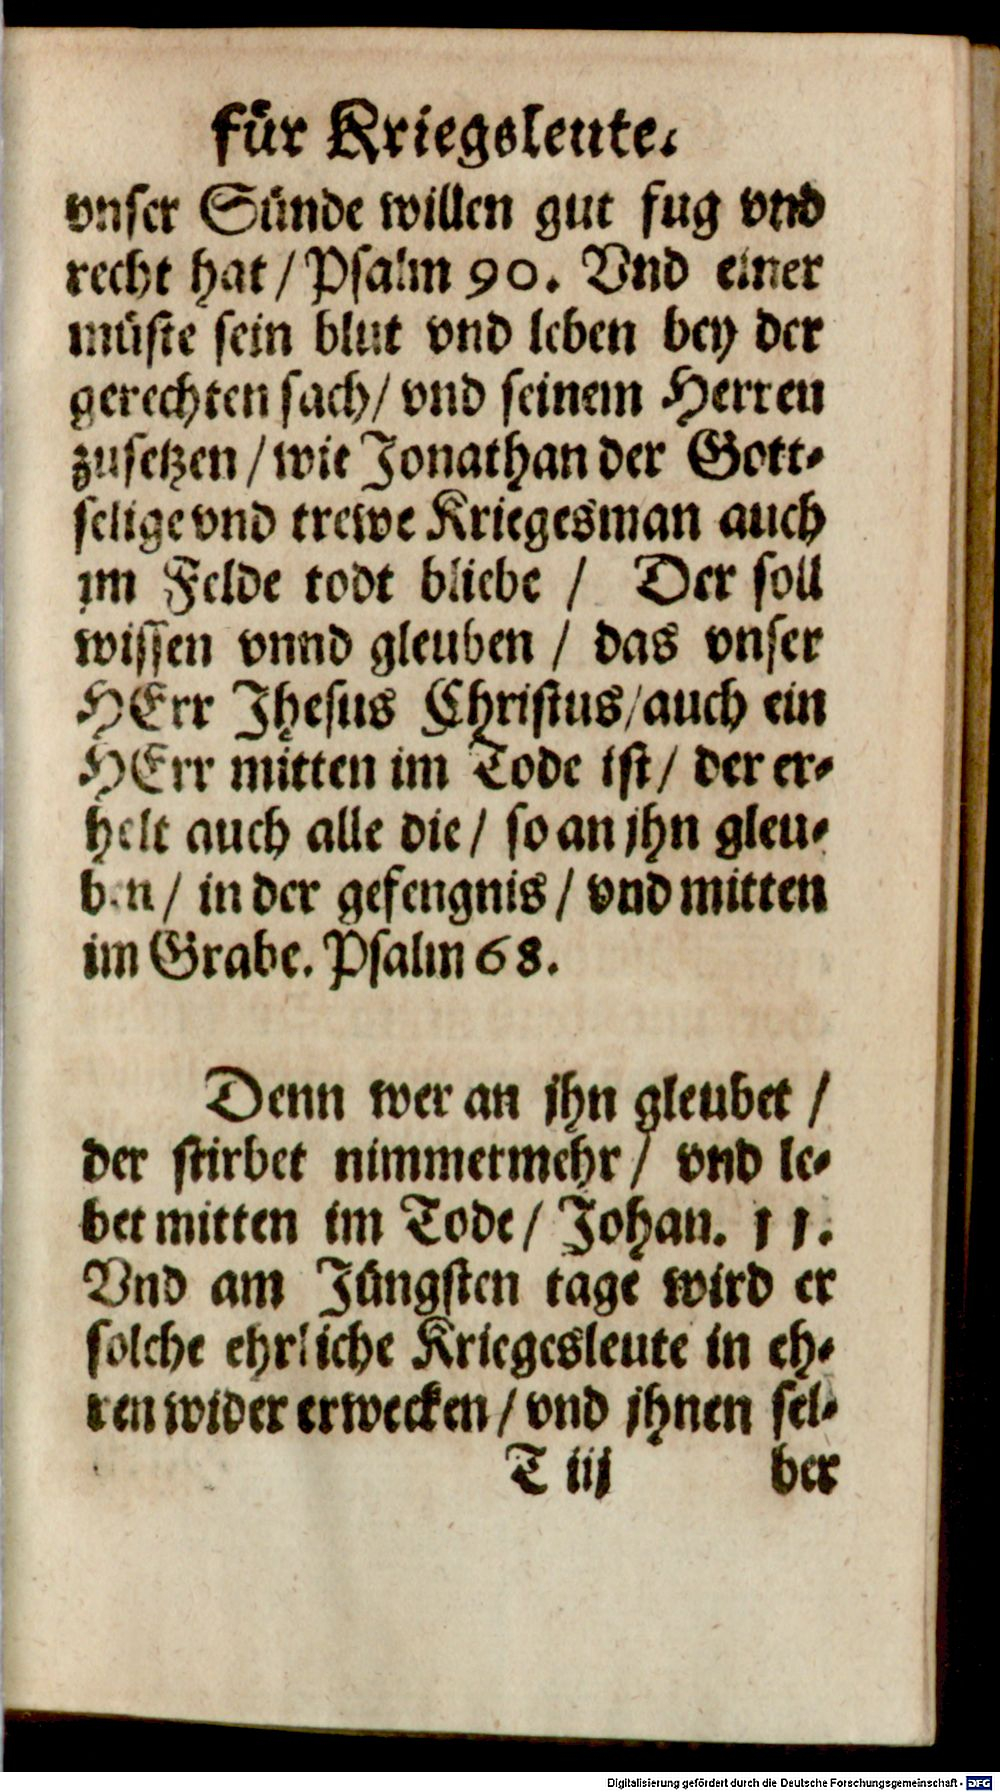 für Kriegsleute.
vnser Sünde willen gut fug vnd
recht hat / Psalm 90. Vnd einer
müste sein blut vnd leben bey der
gerechten sach / vnd seinem Herren
zusetzen / wie Jonathan der Gott-
selige vnd trewe Kriegesman auch
im Felde todt bliebe / Der soll
wissen vnnd gleuben / das vnser
HErr Jhesus Christus / auch ein
HErr mitten im Tode ist / der er-
helt auch alle die / so an jhn gleu-
ben / in der gefengnis / vnd mitten
im Grabe. Psalm 68.
Denn wer an jhn gleubet /
der stirbet nimmermehr / vnd le-
bet mitten im Tode / Johan. 11.
Vnd am Jüngsten tage wird er
solche ehrliche Kriegesleute in eh-
ren wider erwecken / vnd jhnen sel-
T iij ber
Digitalisierung gefördert durch die Deutsche Forschungsgemeinschaft - DFG